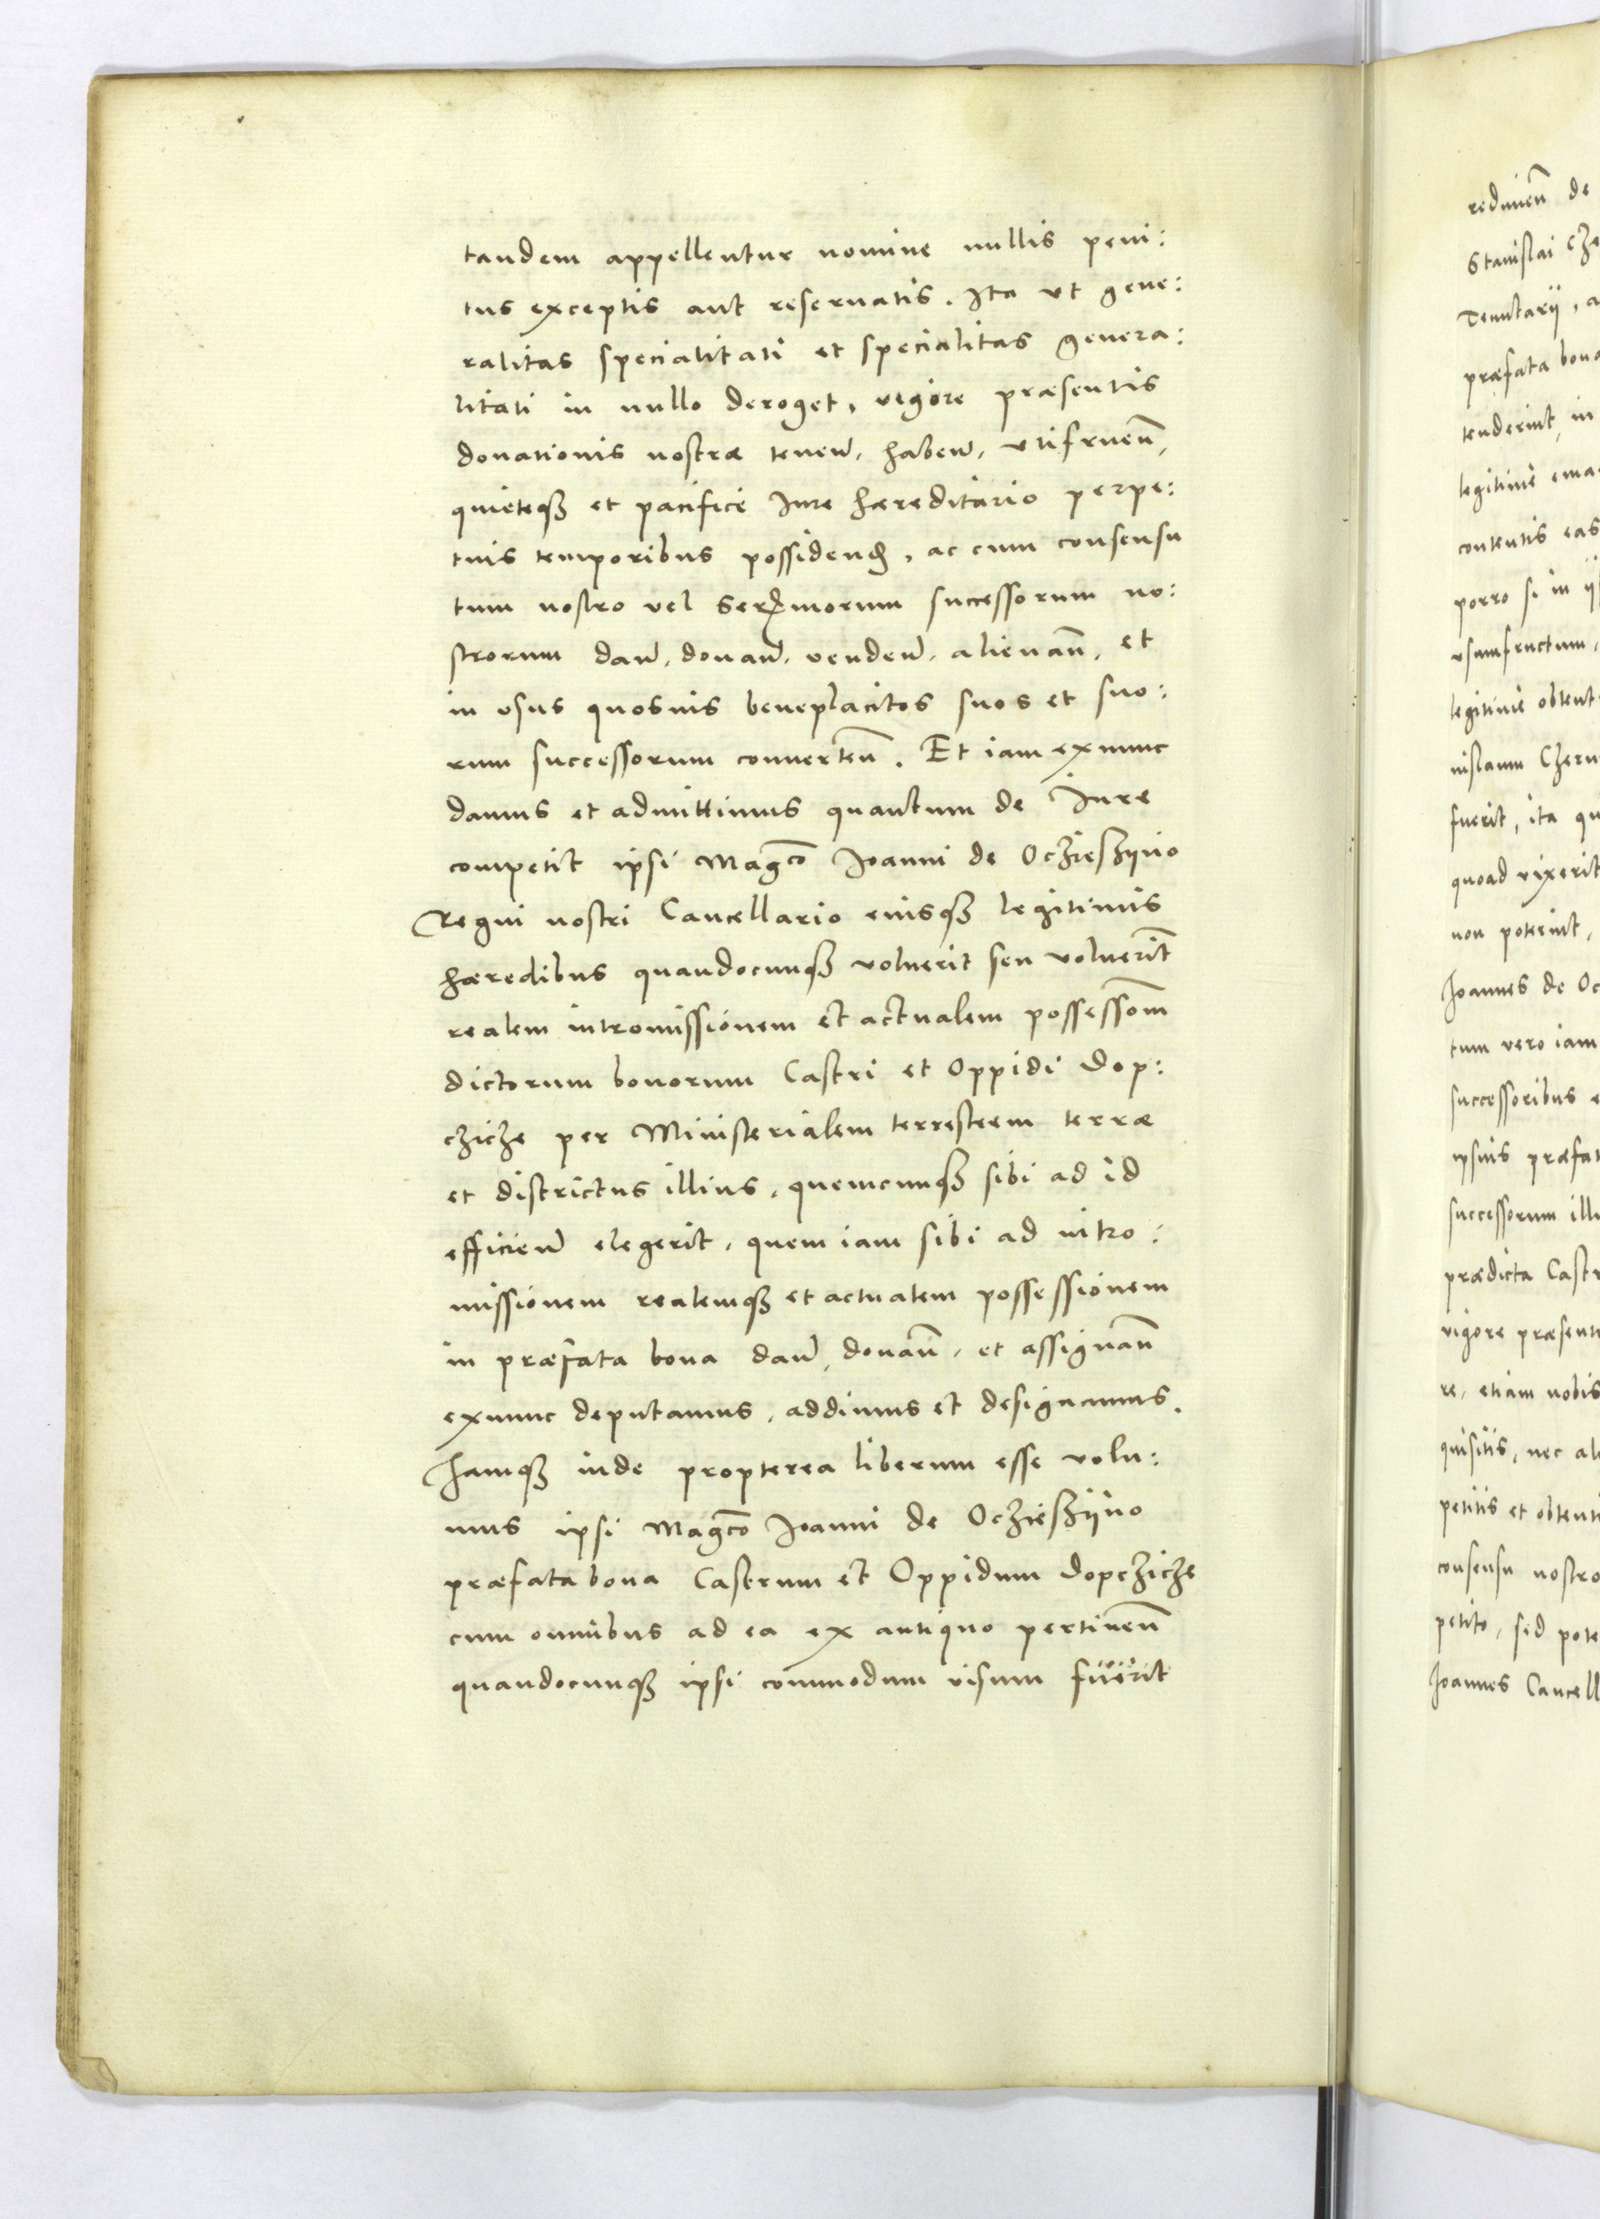 tandem appellentur nomine nullis peni:
tus exceptis aut reseruatis. Ita vt gene:
ralitas specialitati et specialitas genera:
litati in nullo deroget, vigore præsentis
donationis nostræ tenen̄, haben̄, vtifruen̄,
quieteqꝫ et pacifice Iure hæreditario perpe:
tuis temporibus possidenꝺ, ac cum consensu
tum nostro vel Ser̄morum successorum no:
strorum dan̄, donan̄, venden̄, alienan̄, et
in vsus quosuis beneplacitos suos et suo:
rum successorum conuerten̄. Et iam exnunc
damus et admittimus quantum de Iure
competit ipsi Magco̅ Ioanni de Oczieszijno
Regni nostri Cancellario eiusqꝫ legitimis
hæredibus quandocunqꝫ voluerit seu voluerint
realem intromissionem et actualem possessom̅
dictorum bonorum Castri et Oppidi Dop:
czicze per Ministerialem terrestrem terræ
et districtus illius, quemcunqꝫ sibi ad id
efficien̄ elegerit, quem iam sibi ad intro:
missionem realemqꝫ et actualem possessionem
in præfata bona dan̄, donan̄, et assignan̄
exnunc deputamus, addimus et designamus.
Iamqꝫ inde propterea liberum esse volu:
mus ipsi Magco̅ Ioanni de Oczieszijno
præfata bona Castrum et Oppidum Dopczicze
cum omnibus ad ea ex antiquo pertinen̄
quandocunqꝫ ipsi commodum visum fuerit
redimen̄ de
Stanislai
Tenutarij, a
præfata bona
tenderint, in
legitime
contentis eas
porro si in
vsumfructum,
legitime
nislaum
fuerit, ita
quoad vixerit
non poterint,
Ioannes de
tum vero iam
successoribus
ipsius
successorum
prædicta
vigore
re, etiam nobis
quisitis, nec
petitis et
consensu nostro
petito, sed
Ioannes